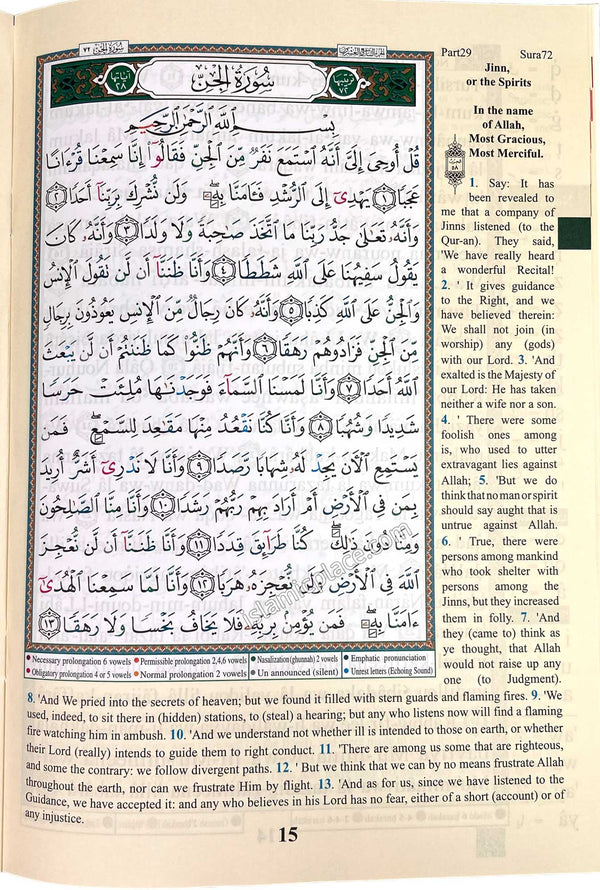 سُورَةُ الْجِنِّ ٧٢
الجزء التاسع والعشرون
Part29 Sura72
Jinn,
or the Spirits
In the name
of Allah,
Most Gracious,
Most Merciful.
آياتها ٢٨
سُورَةُ الْجِنِّ
ترتيبها ٧٢
بِسْمِ اللَّهِ الرَّحْمَٰنِ الرَّحِيمِ
قُلْ أُوحِيَ إِلَيَّ أَنَّهُ اسْتَمَعَ نَفَرٌ مِّنَ الْجِنِّ فَقَالُوا إِنَّا سَمِعْنَا قُرْءَانًا
عَجَبًا ١ يَهْدِي إِلَى الرُّشْدِ فَـَٔامَنَّا بِهِ ۖ وَلَن نُّشْرِكَ بِرَبِّنَا أَحَدًا ٢
وَأَنَّهُ تَعَالَىٰ جَدُّ رَبِّنَا مَا اتَّخَذَ صَاحِبَةً وَلَا وَلَدًا ٣ وَأَنَّهُ كَانَ
يَقُولُ سَفِيهُنَا عَلَى اللَّهِ شَطَطًا ٤ وَأَنَّا ظَنَنَّا أَن لَّن نَقُولَ الْإِنسُ
وَالْجِنُّ عَلَى اللَّهِ كَذِبًا ٥ وَأَنَّهُ كَانَ رِجَالٌ مِّنَ الْإِنسِ يَعُوذُونَ بِرِجَالٍ
مِّنَ الْجِنِّ فَزَادُوهُمْ رَهَقًا ٦ وَأَنَّهُمْ ظَنُّوا كَمَا ظَنَنتُمْ أَن لَّن يَبْعَثَ
اللَّهُ أَحَدًا ٧ وَأَنَّا لَمَسْنَا السَّمَاءَ فَوَجَدْنَاهَا مُلِئَتْ حَرَسًا
شَدِيدًا وَشُهُبًا ٨ وَأَنَّا كُنَّا نَقْعُدُ مِنْهَا مَقَاعِدَ لِلسَّمْعِ ۖ فَمَن
يَسْتَمِعِ الْآنَ يَجِدْ لَهُ شِهَابًا رَّصَدًا ٩ وَأَنَّا لَا نَدْرِي أَشَرٌّ أُرِيدَ
بِمَن فِي الْأَرْضِ أَمْ أَرَادَ بِهِمْ رَبُّهُمْ رَشَدًا ١٠ وَأَنَّا مِنَّا الصَّالِحُونَ
وَمِنَّا دُونَ ذَٰلِكَ ۖ كُنَّا طَرَائِقَ قِدَدًا ١١ وَأَنَّا ظَنَنَّا أَن لَّن نُّعْجِزَ
اللَّهَ فِي الْأَرْضِ وَلَن نُّعْجِزَهُ هَرَبًا ١٢ وَأَنَّا لَمَّا سَمِعْنَا الْهُدَىٰ
ءَامَنَّا بِهِ ۖ فَمَن يُؤْمِن بِرَبِّهِ فَلَا يَخَافُ بَخْسًا وَلَا رَهَقًا ١٣
islamicplace.com
1. Say: It has
been revealed to
me that a company of
Jinns listened (to the
Qur-an). They said,
'We have really heard
a wonderful Recital!
2. ' It gives guidance
to the Right, and we
have believed therein:
We shall not join (in
worship) any (gods)
with our Lord. 3. 'And
exalted is the Majesty of
our Lord: He has taken
neither a wife nor a son.
4. ' There were some
foolish ones among
is, who used to utter
extravagant lies against
Allah; 5. 'But we do
think that no man or spirit
should say aught that is
untrue against Allah.
6. ' True, there were
persons among mankind
who took shelter with
persons among the
Jinns, but they increased
them in folly. 7. 'And
they (came to) think as
ye thought, that Allah
would not raise up any
one (to Judgment).
Necessary prolongation 6 vowels Permissible prolongation 2,4,6 vowels Nasalization (ghunnah) 2 vowels Emphatic pronunciation
Obligatory prolongation 4 or 5 vowels Normal prolongation 2 vowels Un announced (silent) Unrest letters (Echoing Sound)
8. 'And We pried into the secrets of heaven; but we found it filled with stern guards and flaming fires. 9. 'We
used, indeed, to sit there in (hidden) stations, to (steal) a hearing; but any who listens now will find a flaming
fire watching him in ambush. 10. 'And we understand not whether ill is intended to those on earth, or whether
their Lord (really) intends to guide them to right conduct. 11. 'There are among us some that are righteous,
and some the contrary: we follow divergent paths. 12. ' But we think that we can by no means frustrate Allah
throughout the earth, nor can we frustrate Him by flight. 13. 'And as for us, since we have listened to the
Guidance, we have accepted it: and any who believes in his Lord has no fear, either of a short (account) or of
any injustice.
15